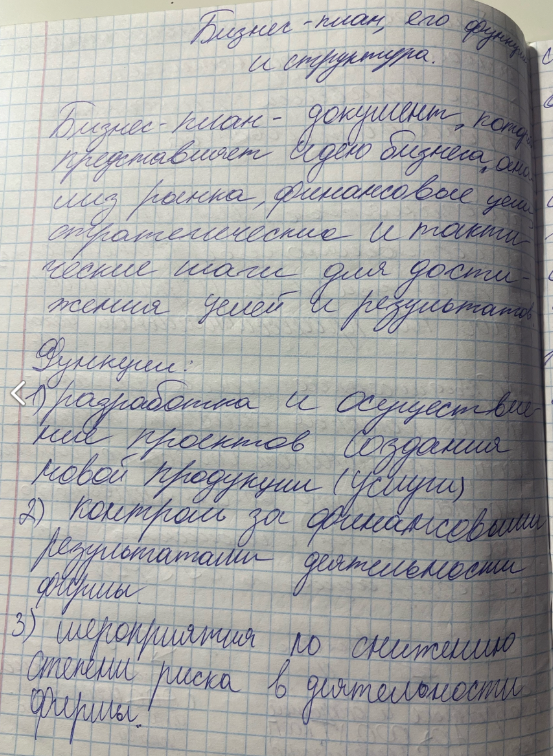 Бизнес-план, его функции
и структура.
Бизнес-план - документ, которы
представляет идею бизнеса, ана-
лиз рынка, финансовые цели
стратегические и такти
ческие шаги для дости-
жения целей и результатов
Функции:
1) разработка и осуществле-
ние проектов создания
новой продукции (услуги)
2) контроль за финансовыми
результатами деятельности
фирмы.
3) мероприятия по снижению
степени риска в деятельности
фирмы.